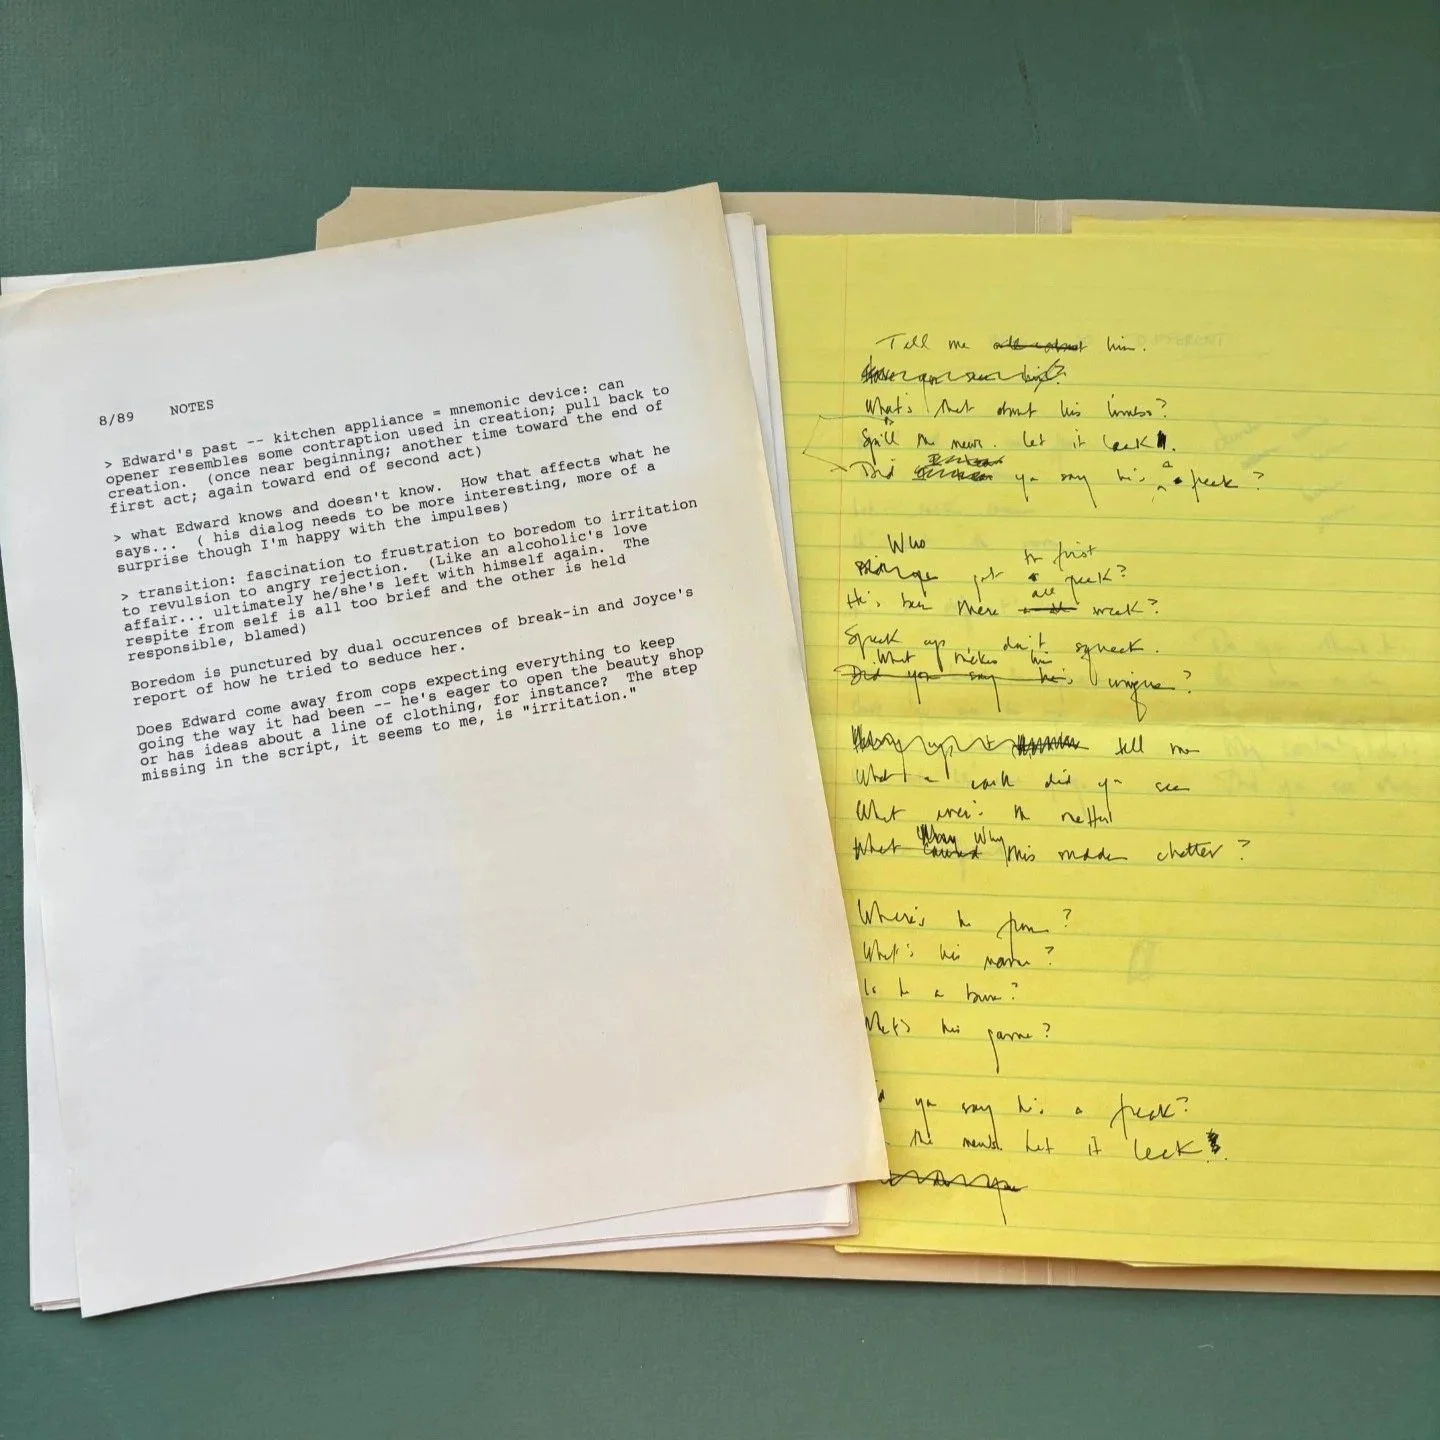 8/89 NOTES
> Edward's past -- kitchen appliance = mnemonic device: can
opener resembles some contraption used in creation; pull back to
creation. (once near beginning; another time toward the end of
first act; again toward end of second act)
> what Edward knows and doesn't know. How that affects what he
says... ( his dialog needs to be more interesting, more of a
surprise though I'm happy with the impulses)
> transition: fascination to frustration to boredom to irritation
to revulsion to angry rejection. (Like an alcoholic's love
affair... ultimately he/she's left with himself again. The
respite from self is all too brief and the other is held
responsible, blamed)
Boredom is punctured by dual occurences of break-in and Joyce's
report of how he tried to seduce her.
Does Edward come away from cops expecting everything to keep
going the way it had been -- he's eager to open the beauty shop
or has ideas about a line of clothing, for instance? The step
missing in the script, it seems to me, is "irritation."
Tell me all about him.
Have you seen him?
What's that about his limbs?
Spill the news. Let it leak.
Did ya say he's a freak?
Who got the first peek?
He's been there all week?
Speak up don't squeak.
What makes him unique?
Did you say he's
tell me
What on earth did ya see
What ever's the matter
Why this sudden chatter?
Where's he from?
What's his name?
Is he a bum?
What's his game?
ya say he's a freak?
the news. Let it leak.